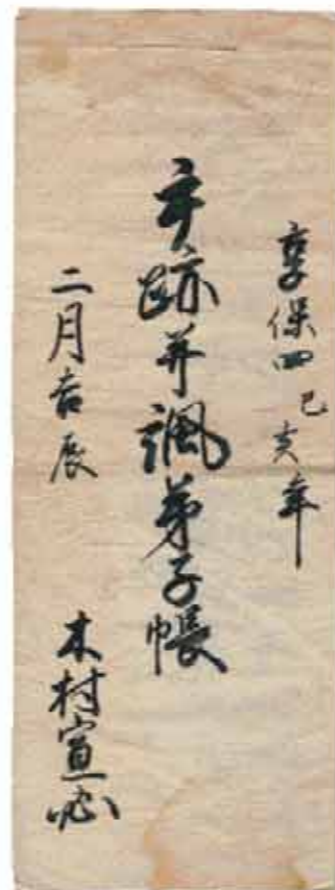 享保四己亥年
手跡并諷弟子帳
二月吉辰
木村宣